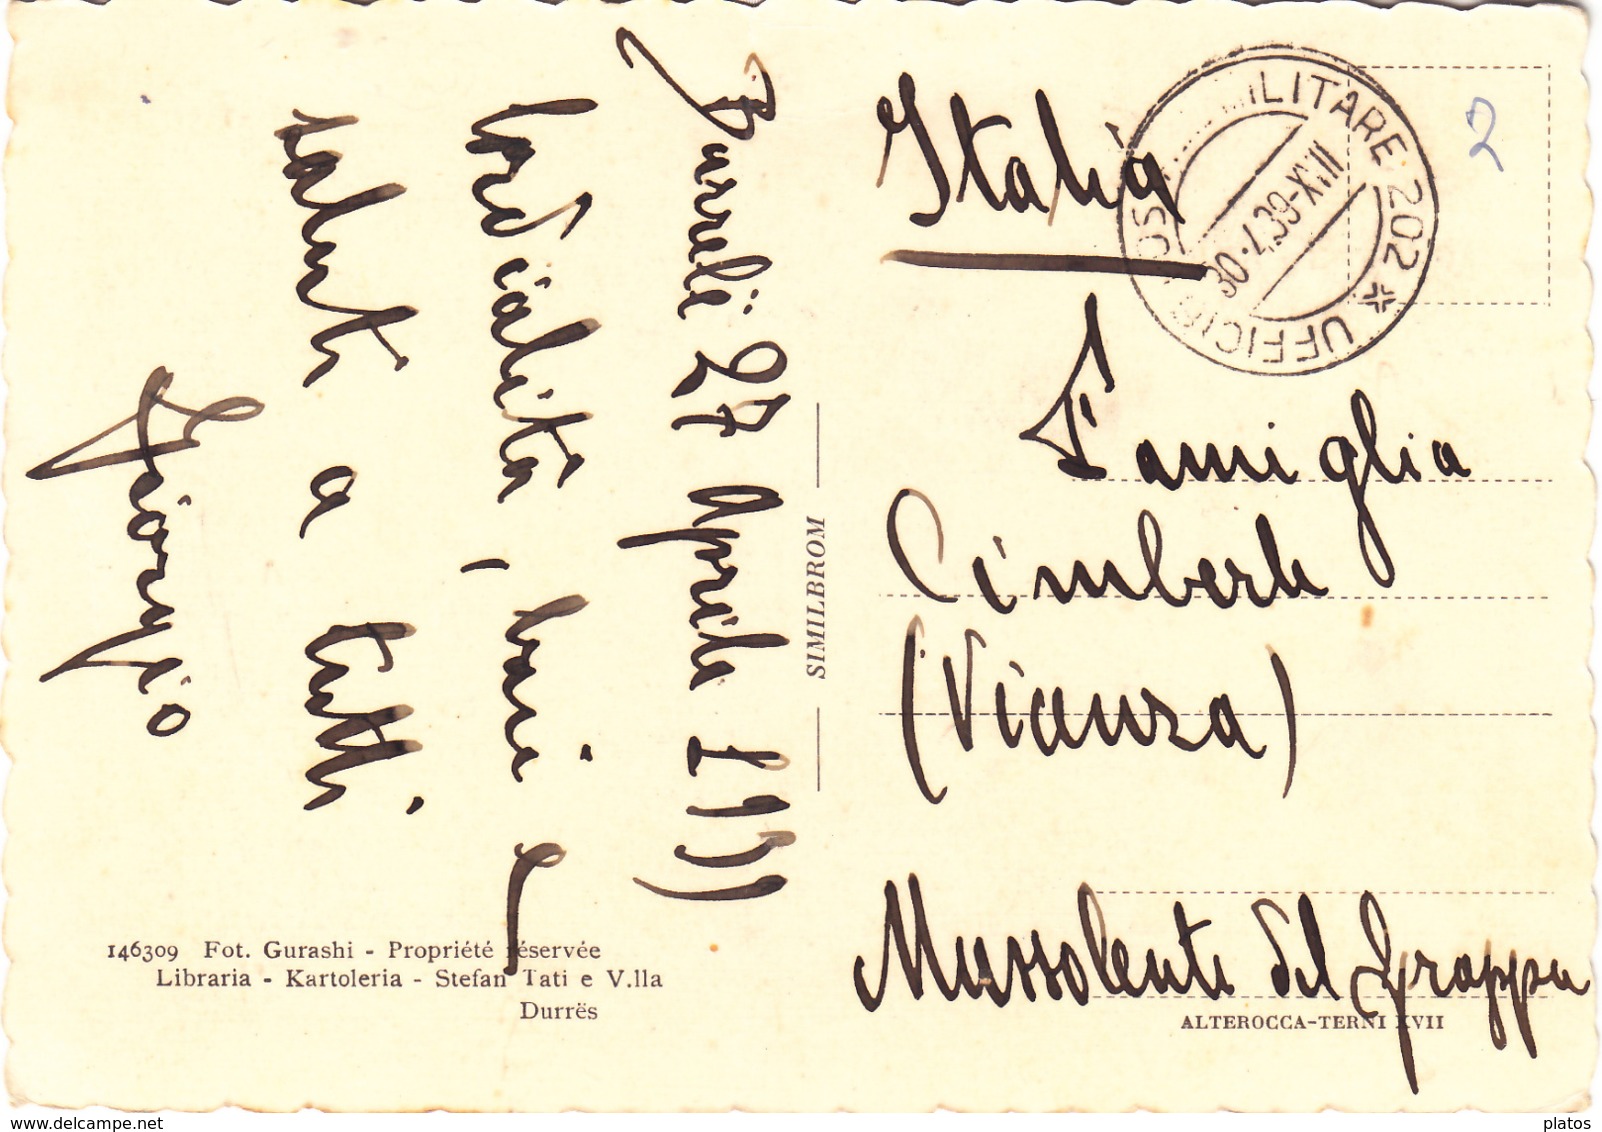 Burreli 27 aprile 1939
cordialità, baci e
saluti a tutti
Giorgio
146309 Fot. Gurashi - Propriété réservée
Libraria - Kartoleria - Stefan Tati e V.lla
Durrës
SIMILBROM
UFFICIO POSTALE MILITARE 202
30.4.39-XVII
2
Italia
Famiglia
Cimberle
(Vicenza)
Mussolente del Grappa
ALTEROCCA-TERNI XVII
delcampe.net
platos